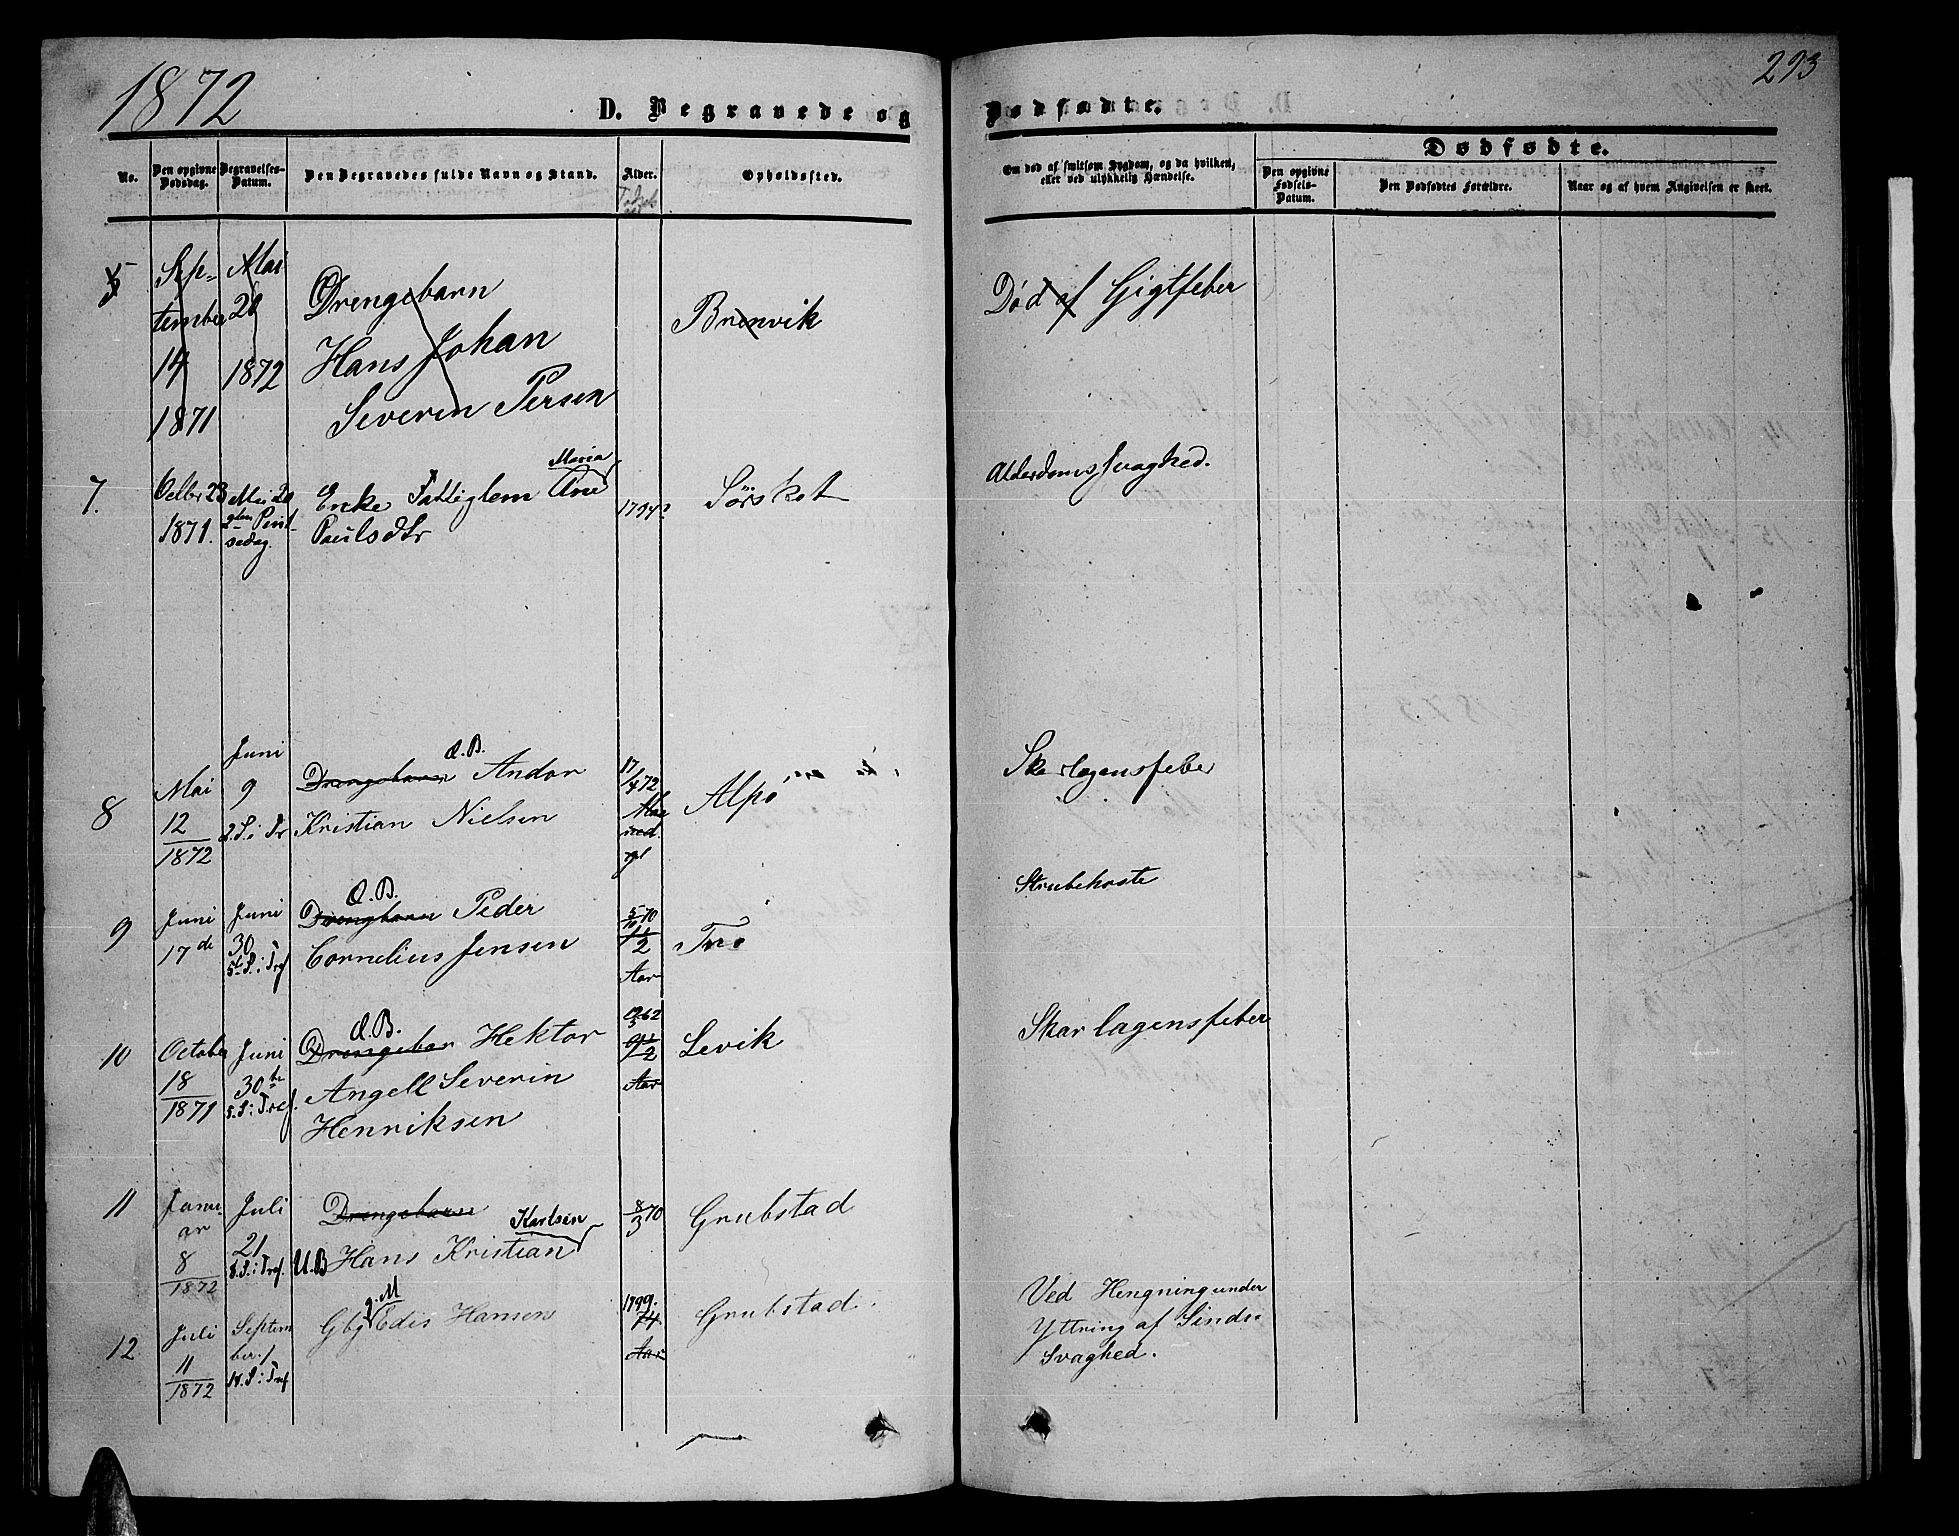 1872
293
D. Begravede og
Dødfødte.
No.
Den opgivne Dødsdag.
Begravelses-Datum.
Den Begravedes fulde Navn og Stand.
Alder.
Opholdssted.
Om død af smitsom Sygdom, og da hvilken, eller ved ulykkelig Hændelse.
Dødfødte.
Den opgivne Fødsels-Datum.
Den Dødfødtes Forældre.
Naar og af hvem Angivelsen er skeet.
5
Sep-
tember
14
1871
Mai
20
1872
Drengebarn
Hans Johan
Severin Persen
Brenvik
Død af Gigtfeber
7.
Octbr 23
1871.
Mai 20
2den Pint-
sedag.
Maria
Enke Fattiglem Ane
Paulsdtr
1794?
Sörskot
Alderdomssvaghed.
8
Mai
12
1872
Juni
9
2. S. i Tr
Æ.B.
Drengebarn Andor
Kristian Nielsen
17
/4 72
Alpö
Skarlagensfeber
9
Juni
17de
Juni
30
5te S. i Tref
Æ.B.
Drengbarn Peder
Cornelius Jensen
5
10 70
1 1/2
Aar
Trö
Strubehoste
10
October
18
1871
Juni
30te
5. S. i Tref.
Æ.B.
Drengebar Hektor
Angell Severin
Henriksen
62
9 1/2
Aar
Levik
Skarlagensfeber
11
Janu-
ar
8
1872
Juli
21
8. S. i Tref.
Drengebarn
Karlsen
U.B Hans Kristian
8
3 70
Grubstad
12
Juli
11
1872
Septem
ber 1
14. S. i Tref
g. M
Gbg Edis Hansen
1799.
74
Aar
Grubstad.
Ved Hengning under
Yttring af Sinds-
Svaghed.